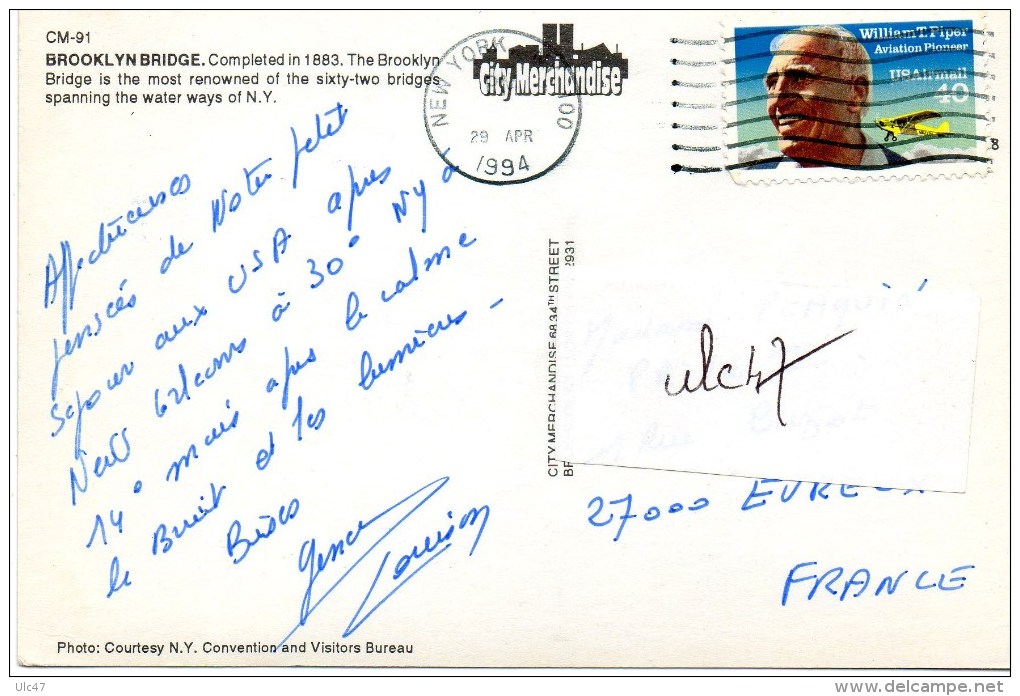 CM-91
BROOKLYN BRIDGE. Completed in 1883. The Brooklyn
Bridge is the most renowned of the sixty-two bridges
spanning the water ways of N.Y.
City Merchandise
NEW YORK 100
29 APR
1994
William T. Piper
Aviation Pioneer
US Airmail
40
8
Affectueuses
pensées de Notre petit
sejour aux USA apres
New Orleans à 30° NY à
14° mais apres le calme
le Bruit et les lumières -
Bises
Louison
CITY MERCHANDISE 68 34TH STREET
2931
ulc47
27000 EVREUX
FRANCE
Photo: Courtesy N.Y. Convention and Visitors Bureau
Ulc47
delcampe.net